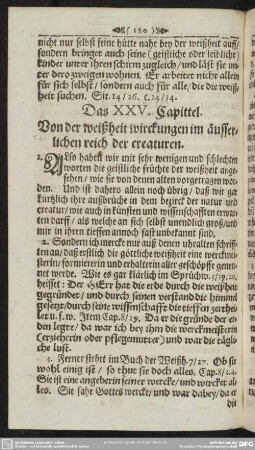 ( 180 )
nicht nur selbst seine hütte nahe bey der weißheit auff/
sondern bringet auch seine (geistliche oder leibliche)
kinder unter ihren schirm zugleich/ und läst sie un-
ter dero zweigen wohnen. Er arbeitet nicht allein
für sich selbst/ sondern auch für alle/ die die weiß-
heit suchen. Sir. 14/26. c. 24/34.
Das XXV. Capittel.
Von der weißheit wirckungen im äusser-
lichen reich der creaturen.
1. Also haben wir mit sehr wenigen und schlechten
worten die geistliche früchte der weißheit ange-
sehen/ wie sie von denen alten vorgetragen wor-
den. Und ist dahero allein noch übrig/ daß wir gar
kurtzlich ihre außbrüche in dem bezirck der natur und
creatur/ wie auch in künsten und wissenschafften erwar-
ten darff/ als welche an sich selbst unendlich groß/ und
noch in ihren tieffen annoch fast unbekannt sind.
2. Sondern ich mercke nur auß denen uhralten schrif-
ten an/ daß erstlich die göttliche weißheit eine werckmei-
sterin/ formiererin und erhalterin aller geschöpffe genen-
net werde. Wie es gar klärlich in Sprüchw. 3/19. 20.
heisset: Der HErr hat die erde durch die weißheit
gegründet/ und durch seinen verstand die himmel
gesetzt/ durch seine wissenschafft die tieffen zerthei-
let u. s. w. Item Cap. 8/29. Da er die gründe der er-
den legte/ da war ich bey ihm die werckmeisterin
(erzieherin oder pflegemutter) und war die tägli-
che lust.
3. Ferner stehet im Buch der Weißh. 7/27. Ob sie
wohl einig ist/ so thut sie doch alles. Cap. 8/4.
Sie ist eine angeberin seiner wercke/ und wircket al-
les. Sie sahe Gottes wercke/ und war dabey/ da er
die